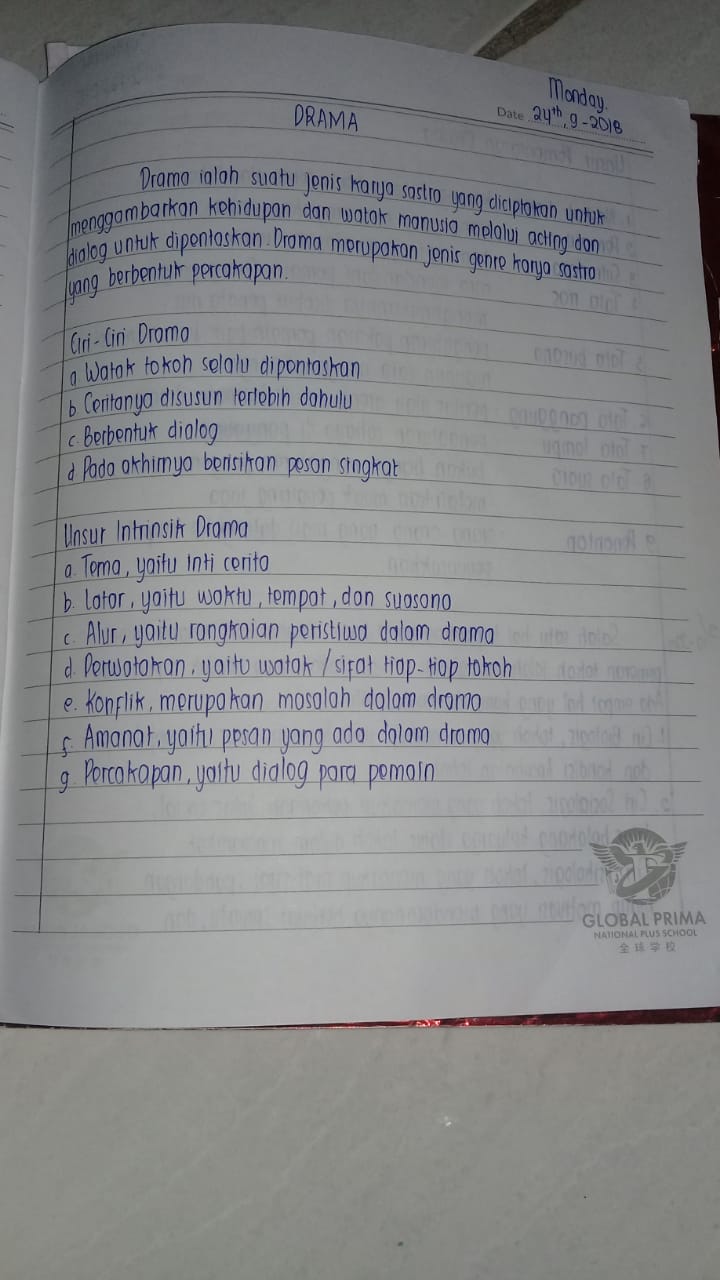 Monday.
Date 24th, 9-2018
DRAMA
Drama ialah suatu jenis karya sastra yang diciptakan untuk
menggambarkan kehidupan dan watak manusia melalui acting dan
dialog untuk dipentaskan. Drama merupakan jenis genre karya sastra
yang berbentuk percakapan.
Ciri-Ciri Drama
a Watak tokoh selalu dipentaskan
b Ceritanya disusun terlebih dahulu
c. Berbentuk dialog
d Pada akhirnya berisikan pesan singkat
Unsur Intrinsik Drama
a. Tema, yaitu inti cerita
b. Latar, yaitu waktu, tempat, dan suasana
c. Alur, yaitu rangkaian peristiwa dalam drama
d. Perwatakan, yaitu watak/sifat tiap-tiap tokoh
e. Konflik, merupakan masalah dalam drama
f. Amanat, yaitu pesan yang ada dalam drama
g. Percakapan, yaitu dialog para pemain
GLOBAL PRIMA
NATIONAL PLUS SCHOOL
全球学校